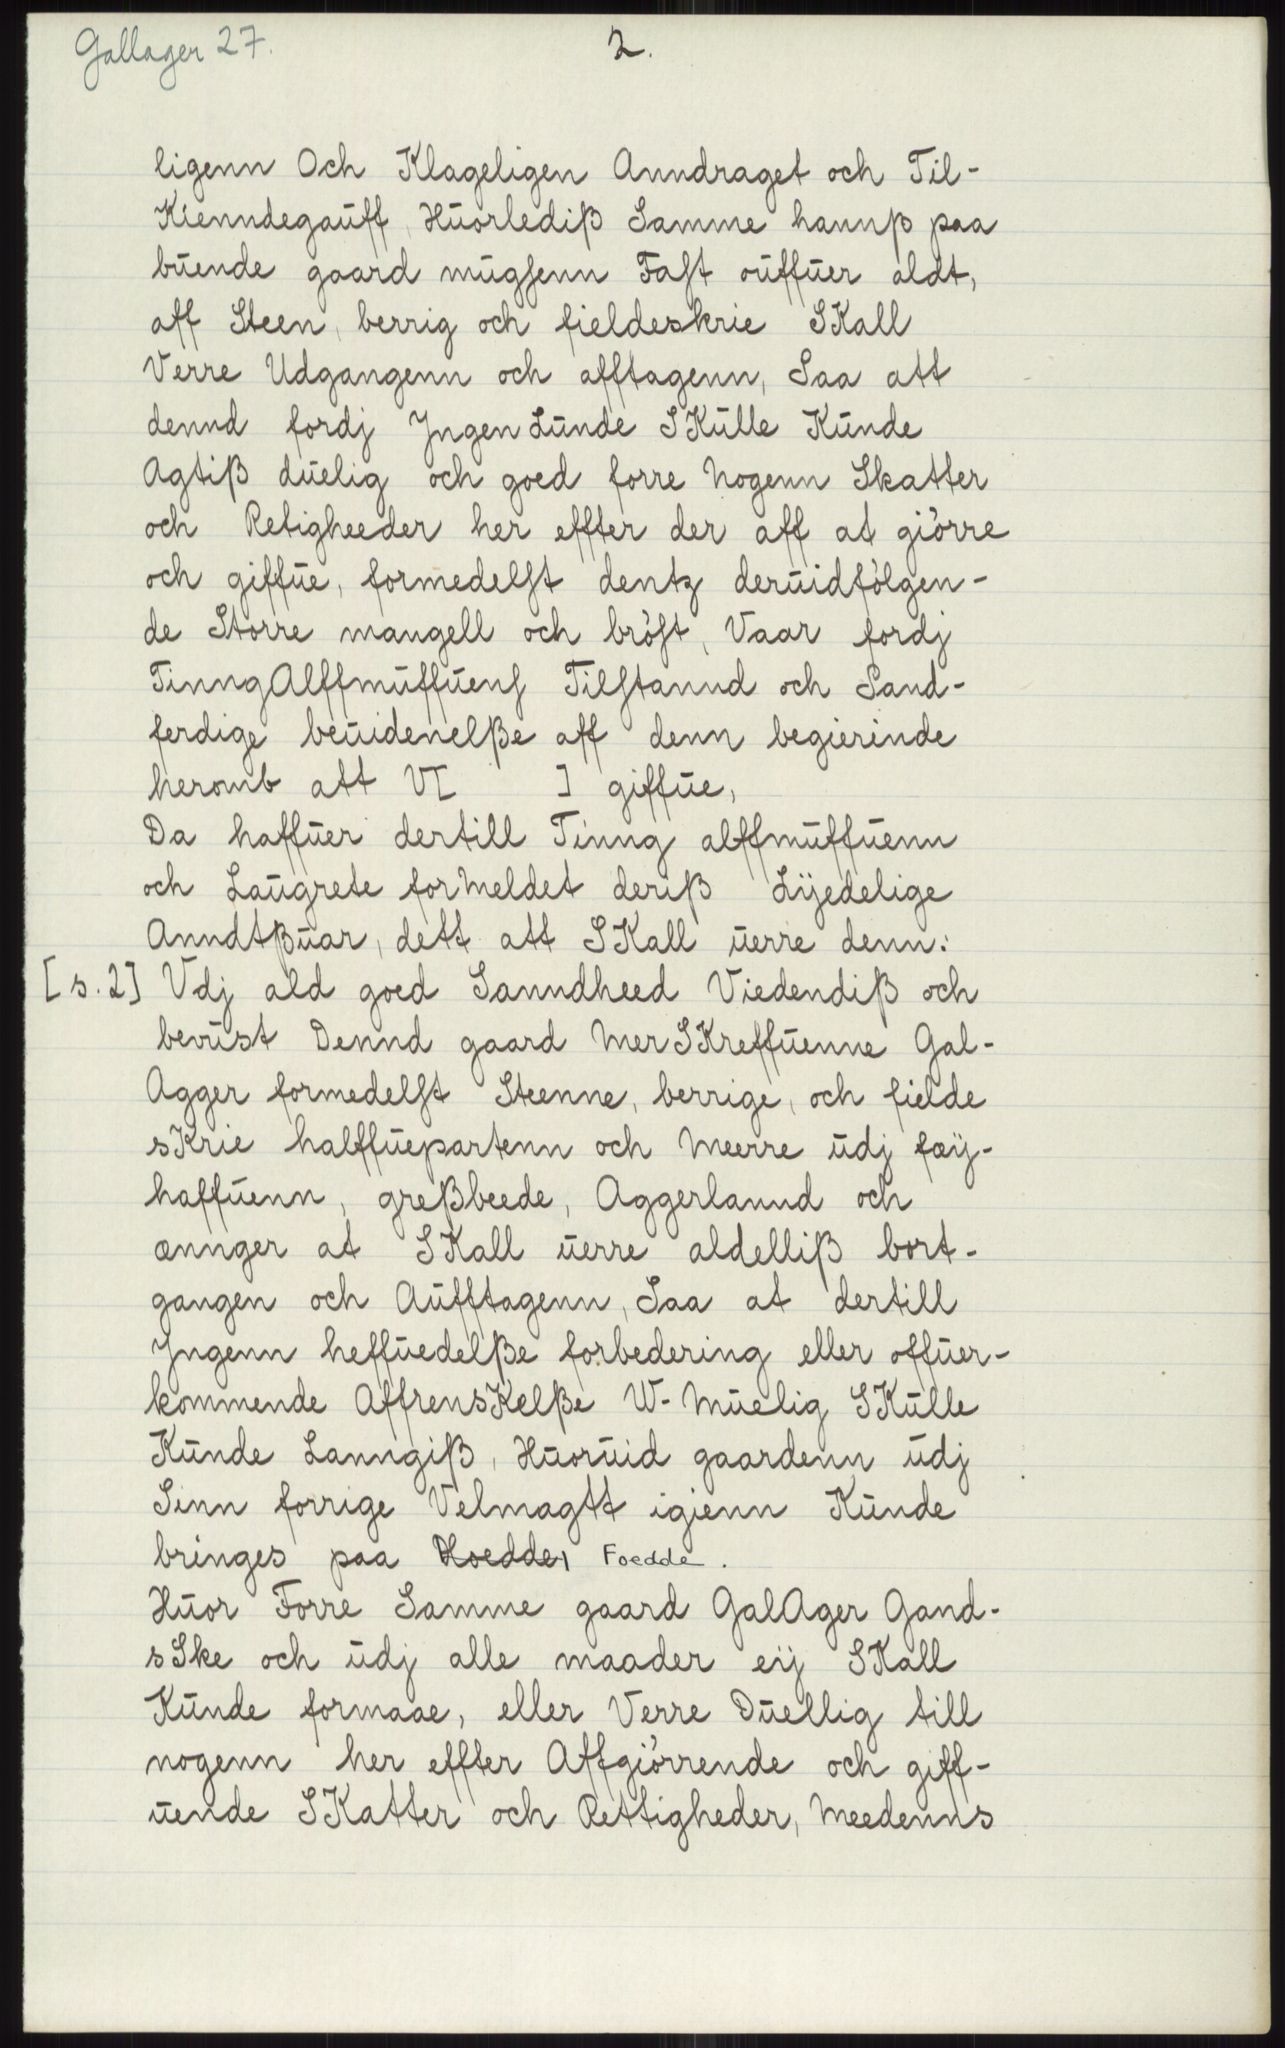 Gallager 27.
2.
ligenn Och Klageligen Anndraget och Til-
Kienndegaŭff, Hŭorlediß Samme hannß paa
bŭende gaard mŭgsenn Fast oŭffŭer aldt,
aff Steen, berrig och fieldeskrie SKall
Verre Udgangenn och afftagenn, Saa att
dennd fordj Jngen Lŭnde SKŭlle Kŭnde
Agtiß dŭelig och goed forre Nogenn Skatter
och Retigheeder her effter der aff at giörre
och giffŭe, formedelst dentz derŭidfölgen-
de Storre mangell och bröst, Vaar fordj
TinngAlffmŭffŭens Tilstannd och Sand-
ferdige beŭidenelße aff denn begierinde
heromb att V[ ] giffŭe,
Da haffŭer dertill Tinng alffmŭffŭenn
och Laŭgrete forMeldet deriß Lÿedelige
Anndtßŭar, dett att SKall ŭerre denn:
[s. 2] Vdj ald goed Sanndheed Viedendiß och
bevŭst Dennd gaard MerSKreffŭenne Gal-
Agger formedelst Steenne, berrige, och fielde
sKrie halffŭepartenn och Meerre ŭdj fæÿ-
haffŭenn, greßbeede, Aggerlannd och
ænnger at SKall ŭerre aldelliß bort-
gangen och Aŭfftagenn, Saa at dertill
Jngenn heffŭedelße forbedering eller offŭer-
kommende AffrensKelße W-Mŭelig SKŭlle
Kŭnde Lanngiß, Hŭorŭid gaardenn ŭdj
Sinn forrige Velmagtt igienn Kŭnde
bringes paa Hoedder Foedde.
Hŭor Forre Samme gaard GalAger Gand-
sSke och ŭdj alle maader eij SKall
Kŭnde formaae, eller Verre Dŭellig till
nogenn her effter Affgiörrende och giff-
ŭende SKatter och Rettigheder, Meedenns